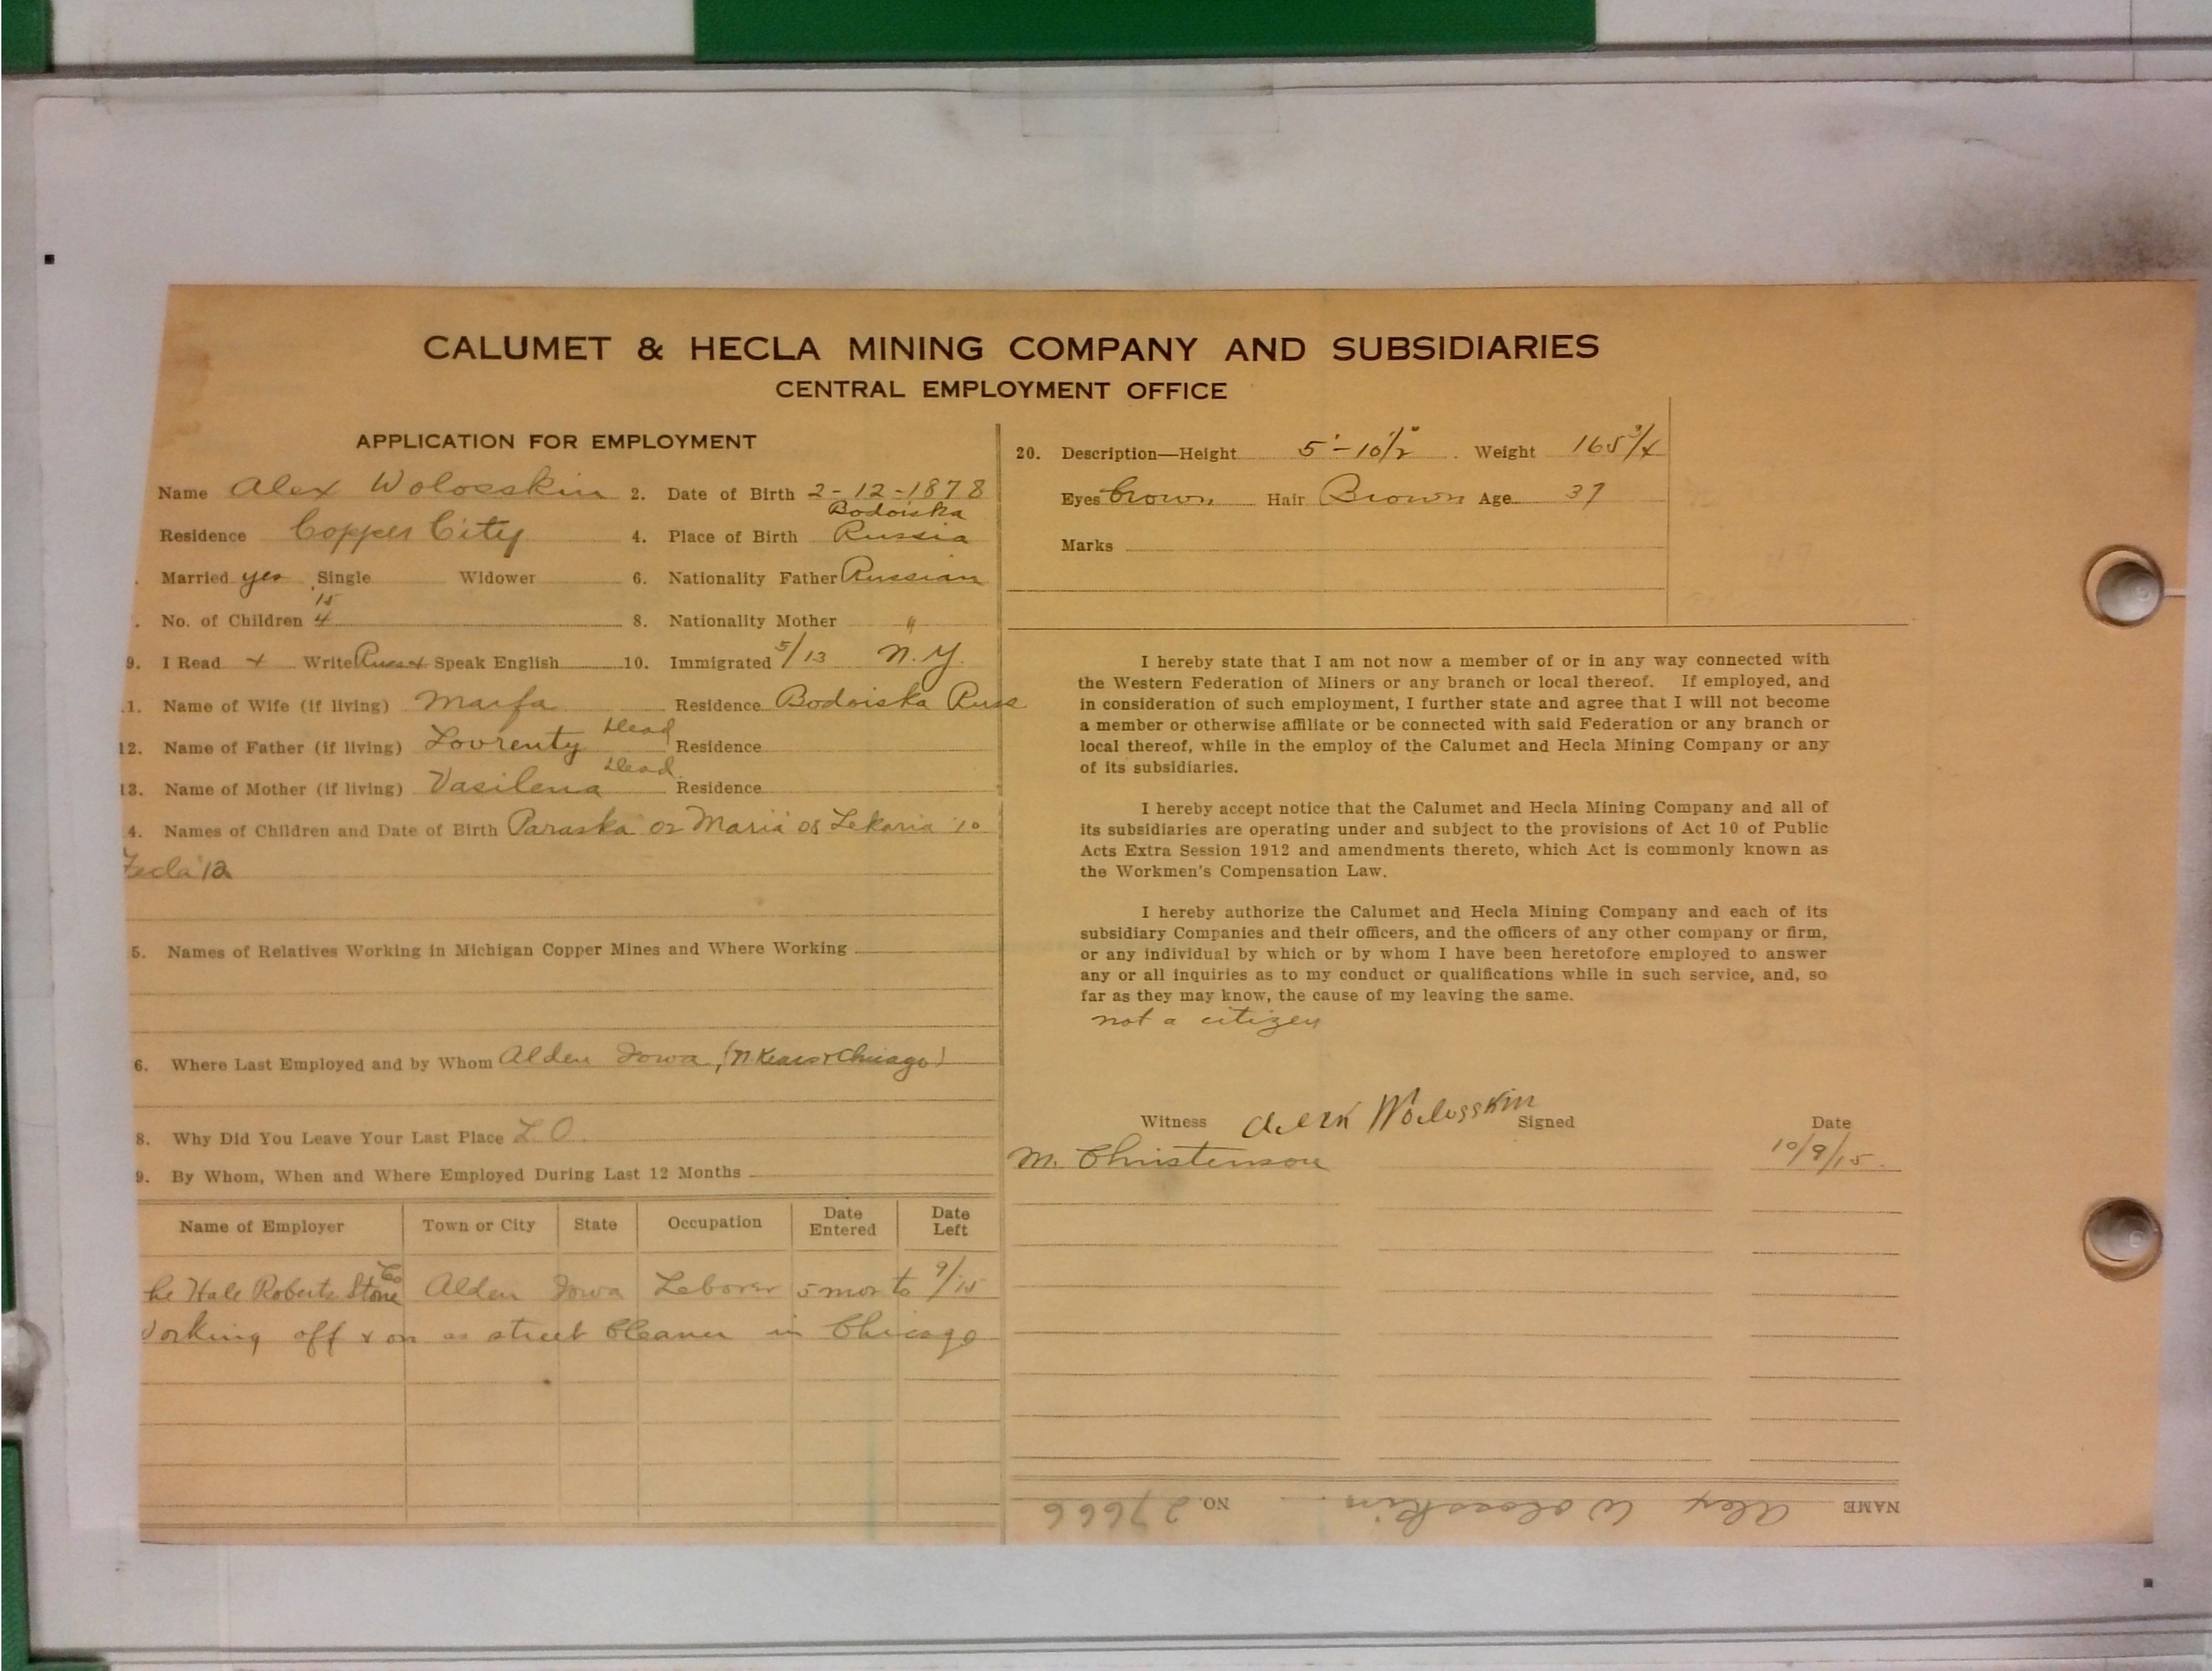 CALUMET & HECLA MINING COMPANY AND SUBSIDIARIES
CENTRAL EMPLOYMENT OFFICE
APPLICATION FOR EMPLOYMENT
Name Alex Wolosskin 2. Date of Birth 2-12-1878
Bodoiska
Residence Copper City 4. Place of Birth Russia
Married yes Single Widower 6. Nationality Father Russian
15
No. of Children 4 8. Nationality Mother "
9. I Read + Write Russ + Speak English 10. Immigrated 5/13 N.Y.
1. Name of Wife (if living) Marfa Residence Bodoiska Russ
12. Name of Father (if living) Lovrenty Dead Residence
13. Name of Mother (if living) Vasilena Dead Residence
4. Names of Children and Date of Birth Paraska 02 Maria 08 Lekaria '10
Fecla '12
5. Names of Relatives Working in Michigan Copper Mines and Where Working
6. Where Last Employed and by Whom Alden Iowa, (N. Kears + Chicago)
8. Why Did You Leave Your Last Place L O.
9. By Whom, When and Where Employed During Last 12 Months
Name of Employer Town or City State Occupation Date Entered Date Left
he Hale Roberts Stone Co Alden Iowa Laborer 5 mos to 9/15
orking off + on as street Cleaner in Chicago
20. Description—Height 5'-10½" Weight 165¾
Eyes Brown Hair Brown Age 37
Marks
I hereby state that I am not now a member of or in any way connected with
the Western Federation of Miners or any branch or local thereof. If employed, and
in consideration of such employment, I further state and agree that I will not become
a member or otherwise affiliate or be connected with said Federation or any branch or
local thereof, while in the employ of the Calumet and Hecla Mining Company or any
of its subsidiaries.
I hereby accept notice that the Calumet and Hecla Mining Company and all of
its subsidiaries are operating under and subject to the provisions of Act 10 of Public
Acts Extra Session 1912 and amendments thereto, which Act is commonly known as
the Workmen's Compensation Law.
I hereby authorize the Calumet and Hecla Mining Company and each of its
subsidiary Companies and their officers, and the officers of any other company or firm,
or any individual by which or by whom I have been heretofore employed to answer
any or all inquiries as to my conduct or qualifications while in such service, and, so
far as they may know, the cause of my leaving the same.
not a citizen
Witness Wolosskin Signed Date
M. Christenson 10/9/15.
NAME Alex Wolosskin NO. 27666